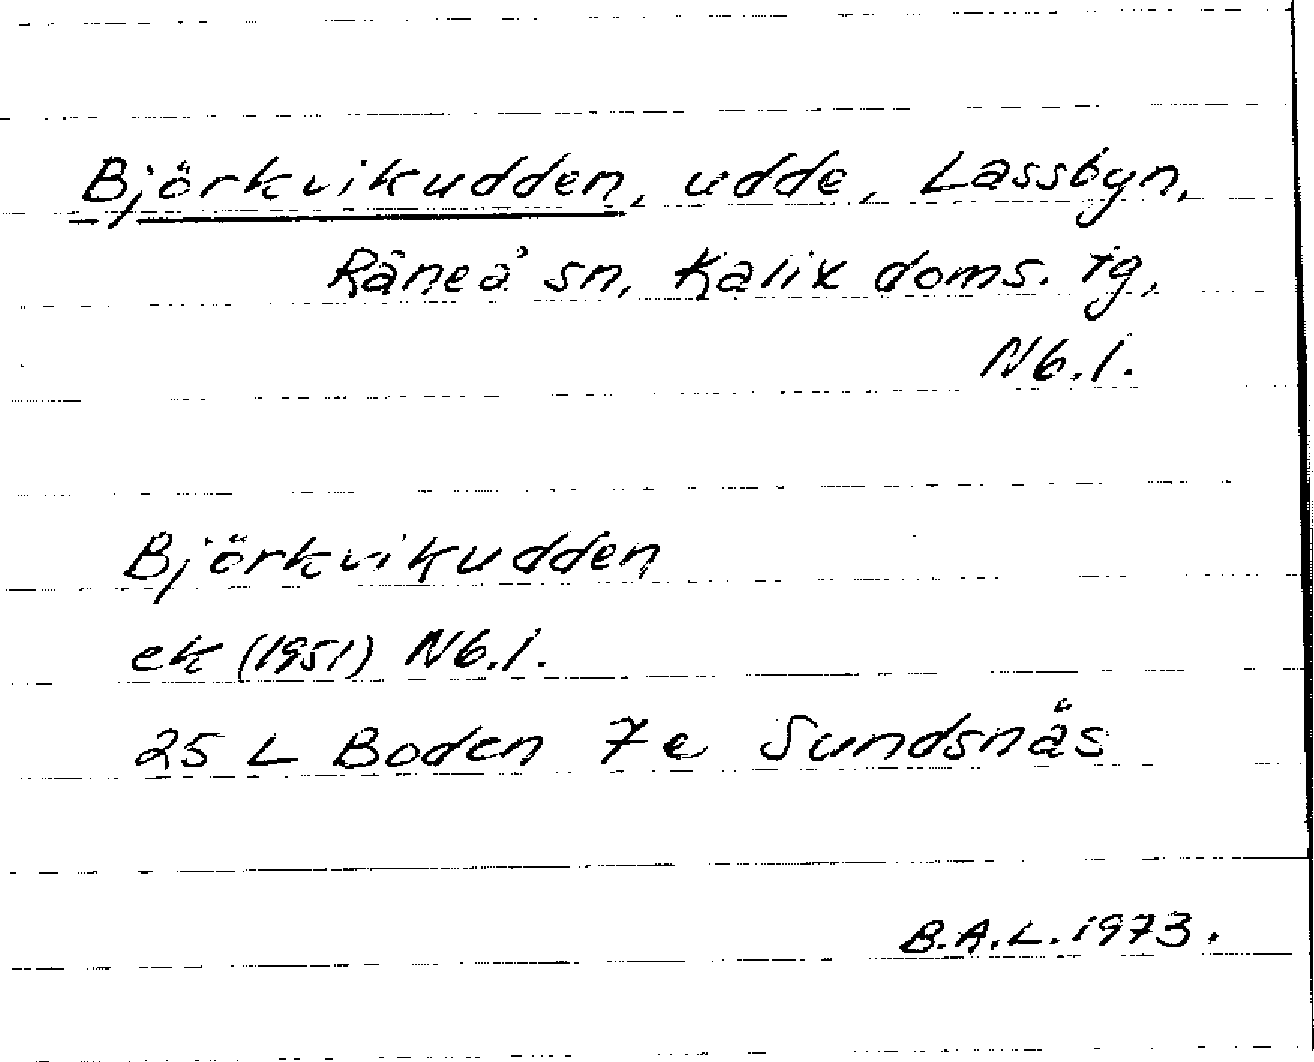 Björkvikudden, udde, Lassbyn,
Råneå sn, Kalix doms. tg,
Nb.l.
Björkvikudden
ek (1951) Nb.l.
25 L Boden 7e Sundsnäs
B.A.L. 1973.